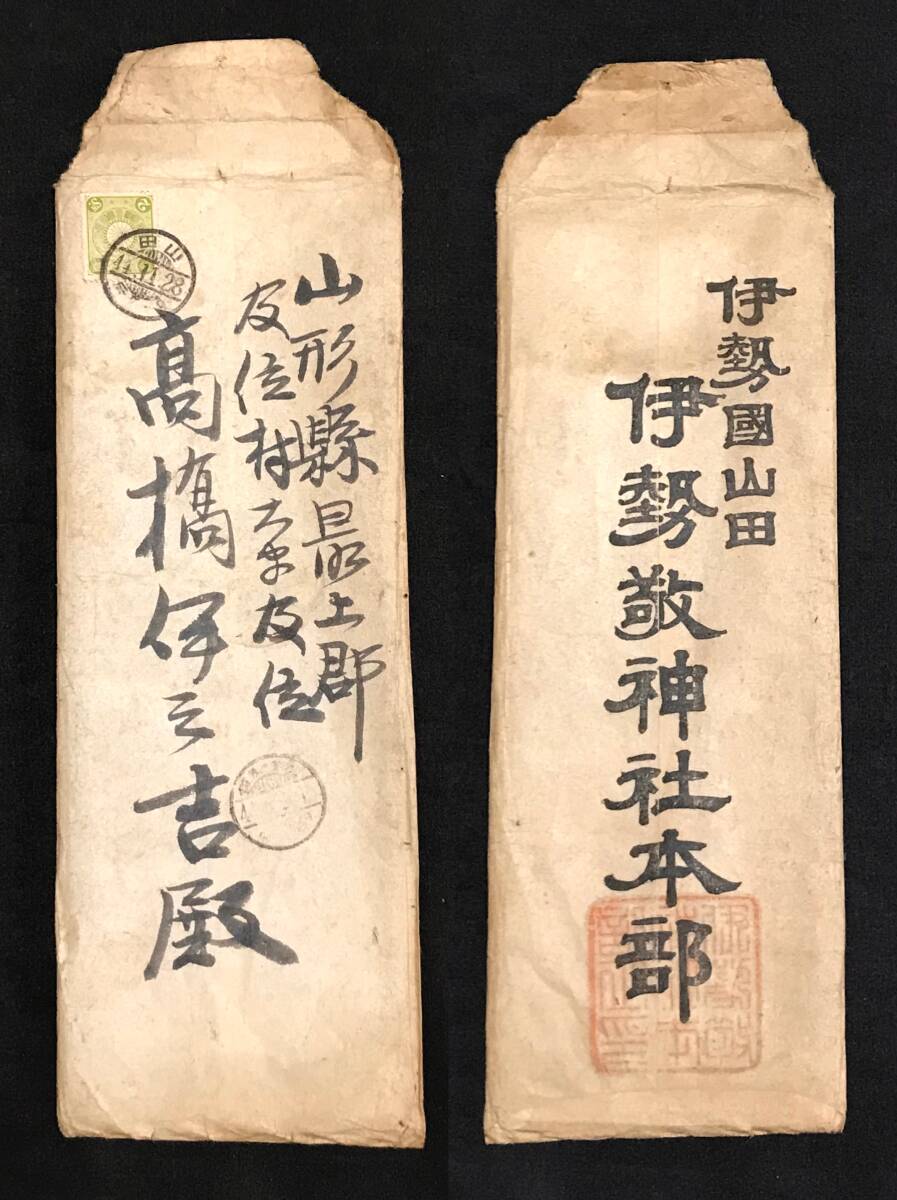 山形縣最上郡
及位村大字及位
髙橋伊之吉殿
山田
44.11.28
伊勢國山田
伊勢敬神社本部